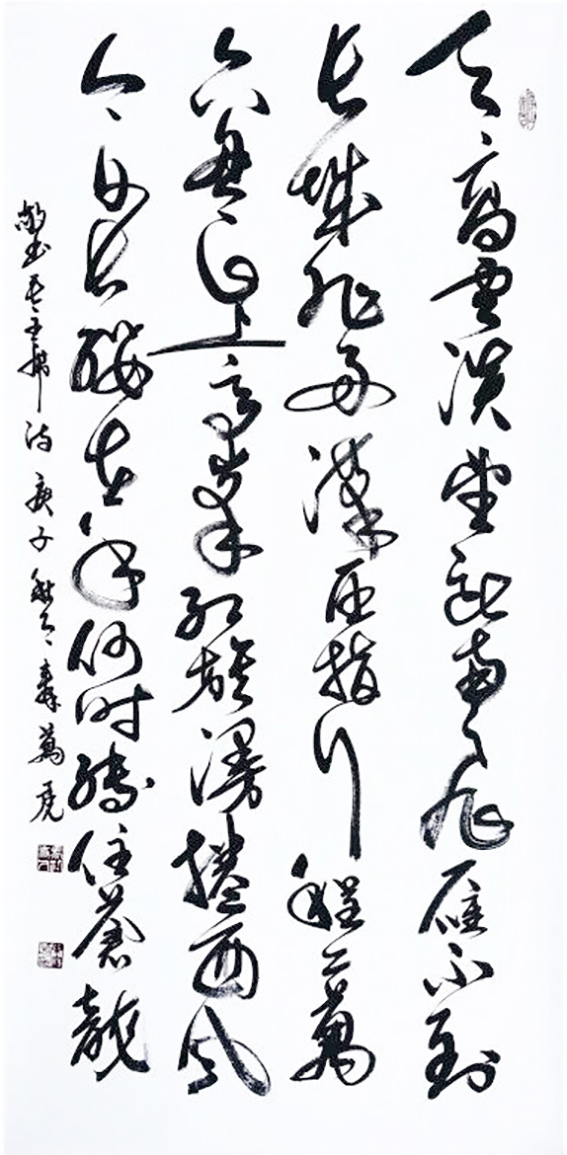 天高雲淡望断南飛雁不到
長城非好漢屈指行程二萬
六盤山上高峯紅旗漫捲西風
今日長纓在手何時縛住蒼龍
敬书毛主席詩 庚子秋 萬